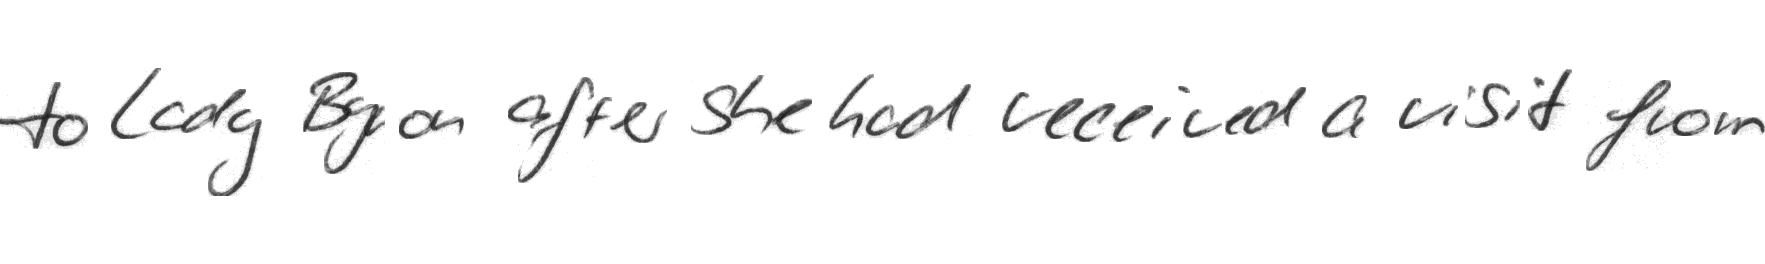 to Lady Byron after she had received a visit from